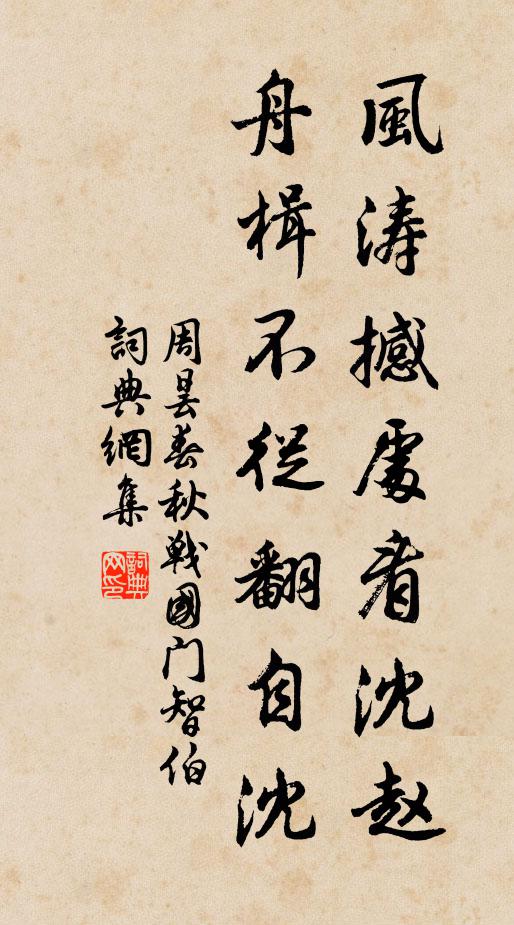 風涛撼處看沈赵
舟楫不從翻自沈
周昙春秋戰國门智伯
詞典網集
詞典网印